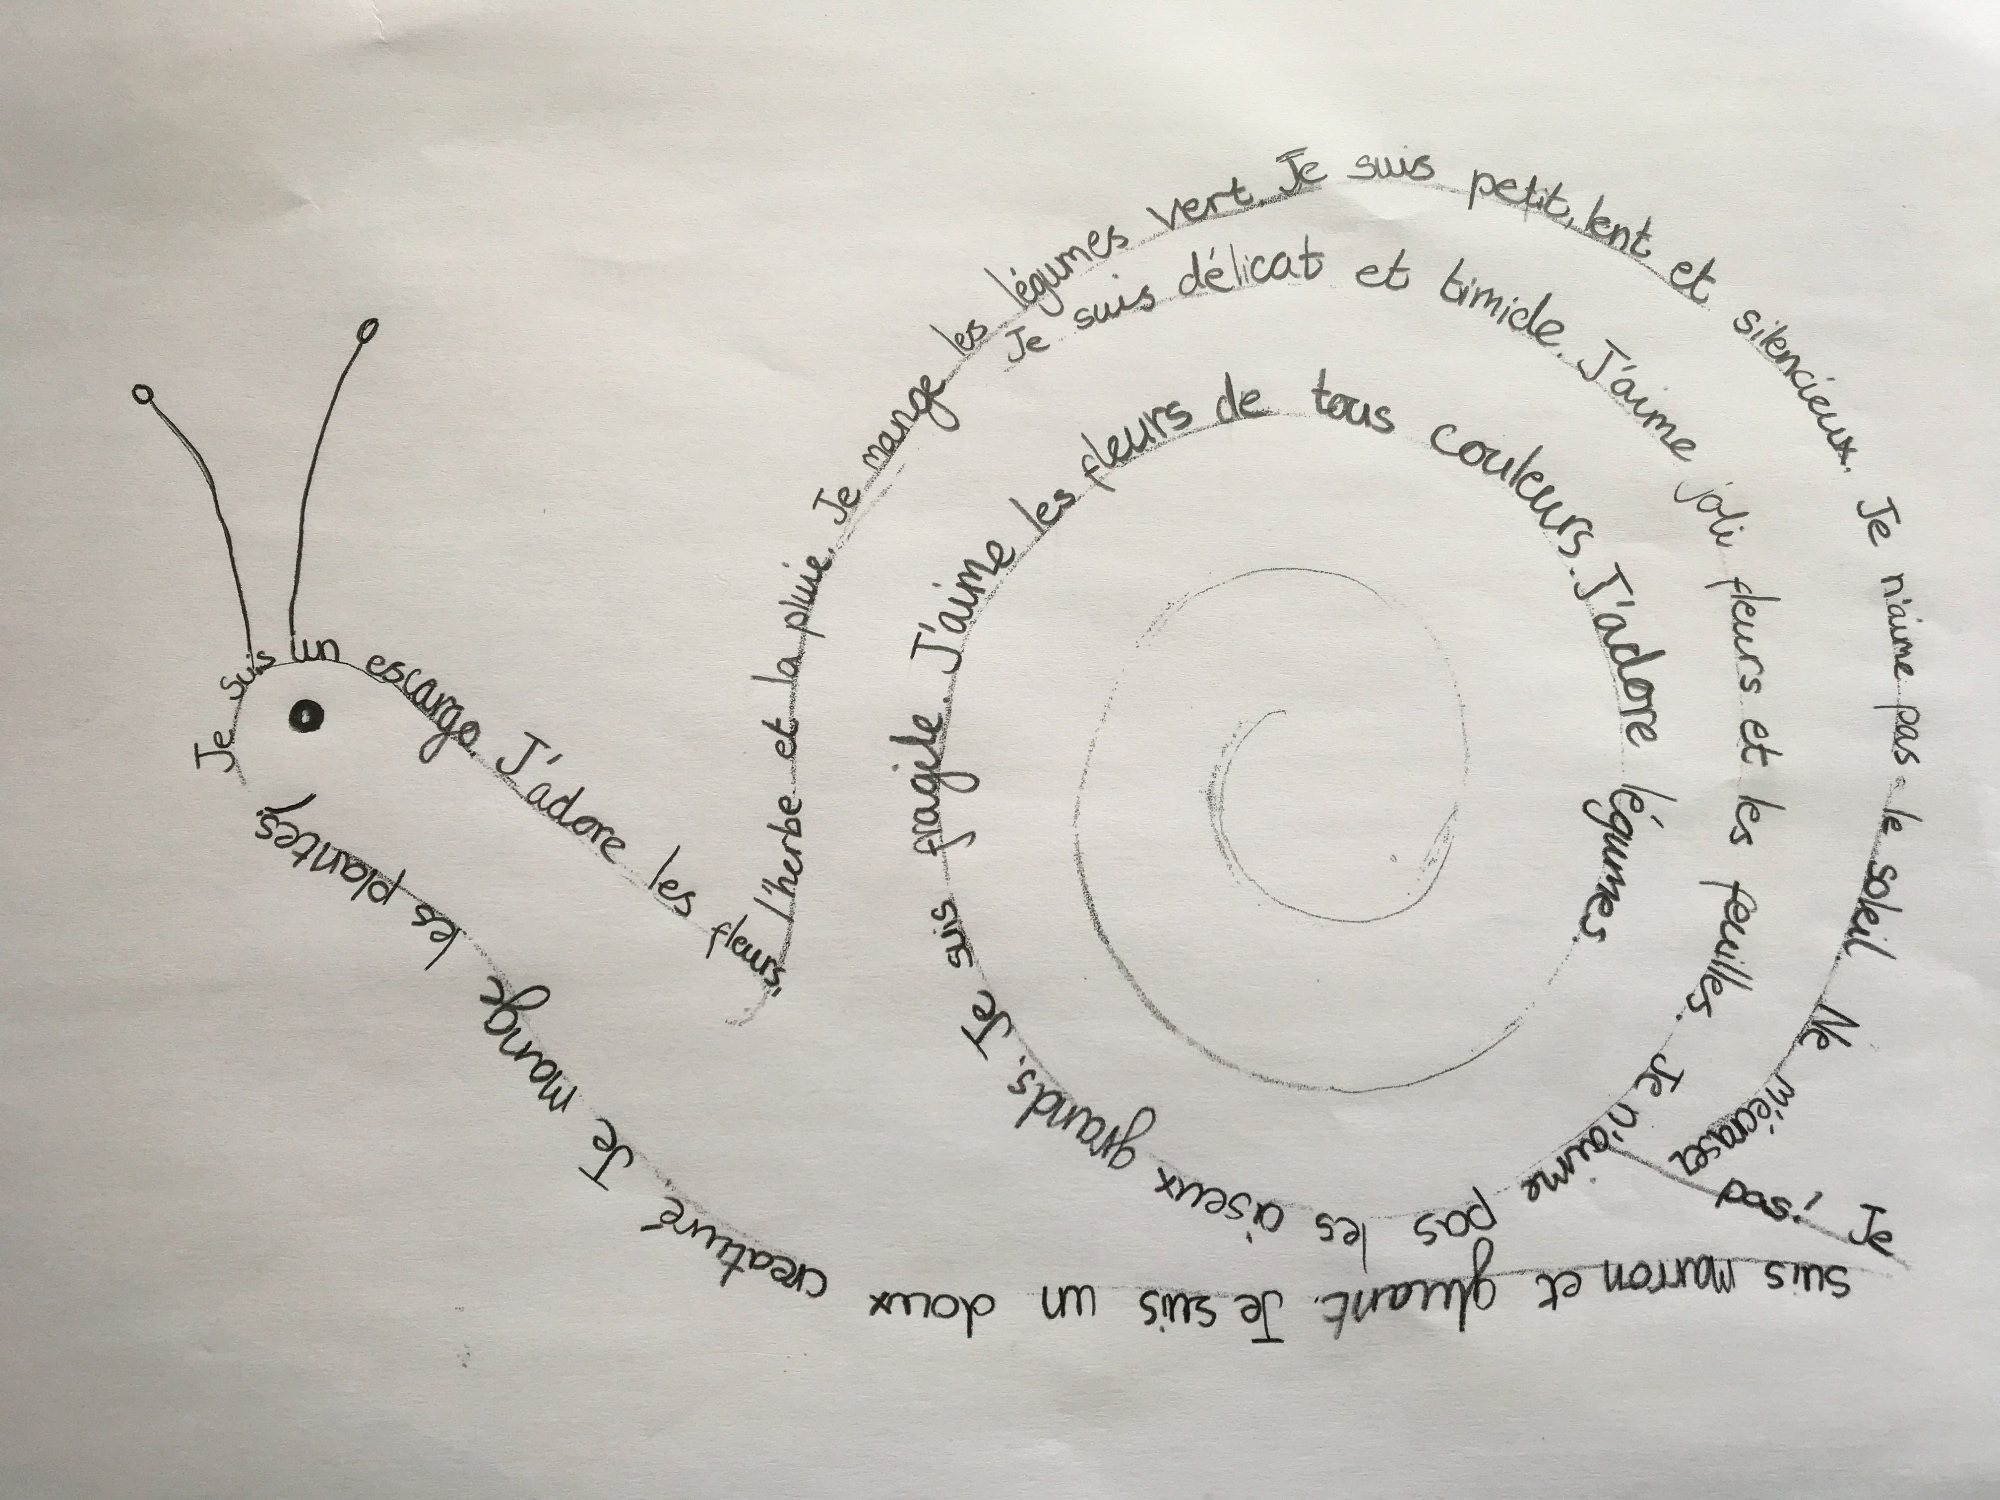 Je suis un escargo. J'adore les fleurs,
l'herbe et la pluie. Je mange les légumes vert. Je suis petit, lent et silencieux. Je n'aime pas le soleil. Ne m'écrasez pas! Je
suis marron et gluant. Je suis un doux creaturé. Je mange les plantes.
Je suis délicat et timide. J'aime joli fleurs et les feuilles. Je n'aime pas les oiseux grands. Je suis fragile. J'aime les fleurs de tous couleurs. J'adore légumes